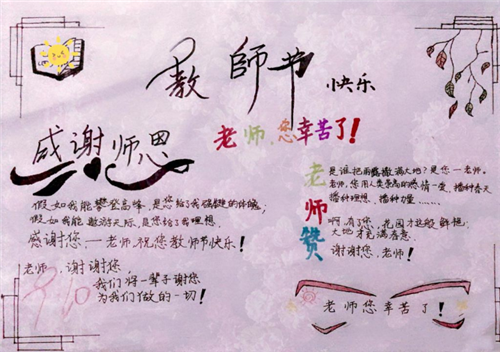 教師节
快乐
感谢师恩
老师,您辛苦了!
假如我能攀登高峰,是您给了我强健的体魄,
假如我能遨游天际,是您给了我理想。
感谢您——老师,祝您教师节快乐!
老师,谢谢您,
我们将一辈子谢您
为我们做的一切!
9.10
老师赞
是谁把雨露撒满大地?是您—老师。
老师,您用人类崇高的热情—爱,播种春天
播种理想、播种力量……
啊,有您,花园才这般鲜艳,
大地才充满春意。
谢谢您,老师!
老师您辛苦了!